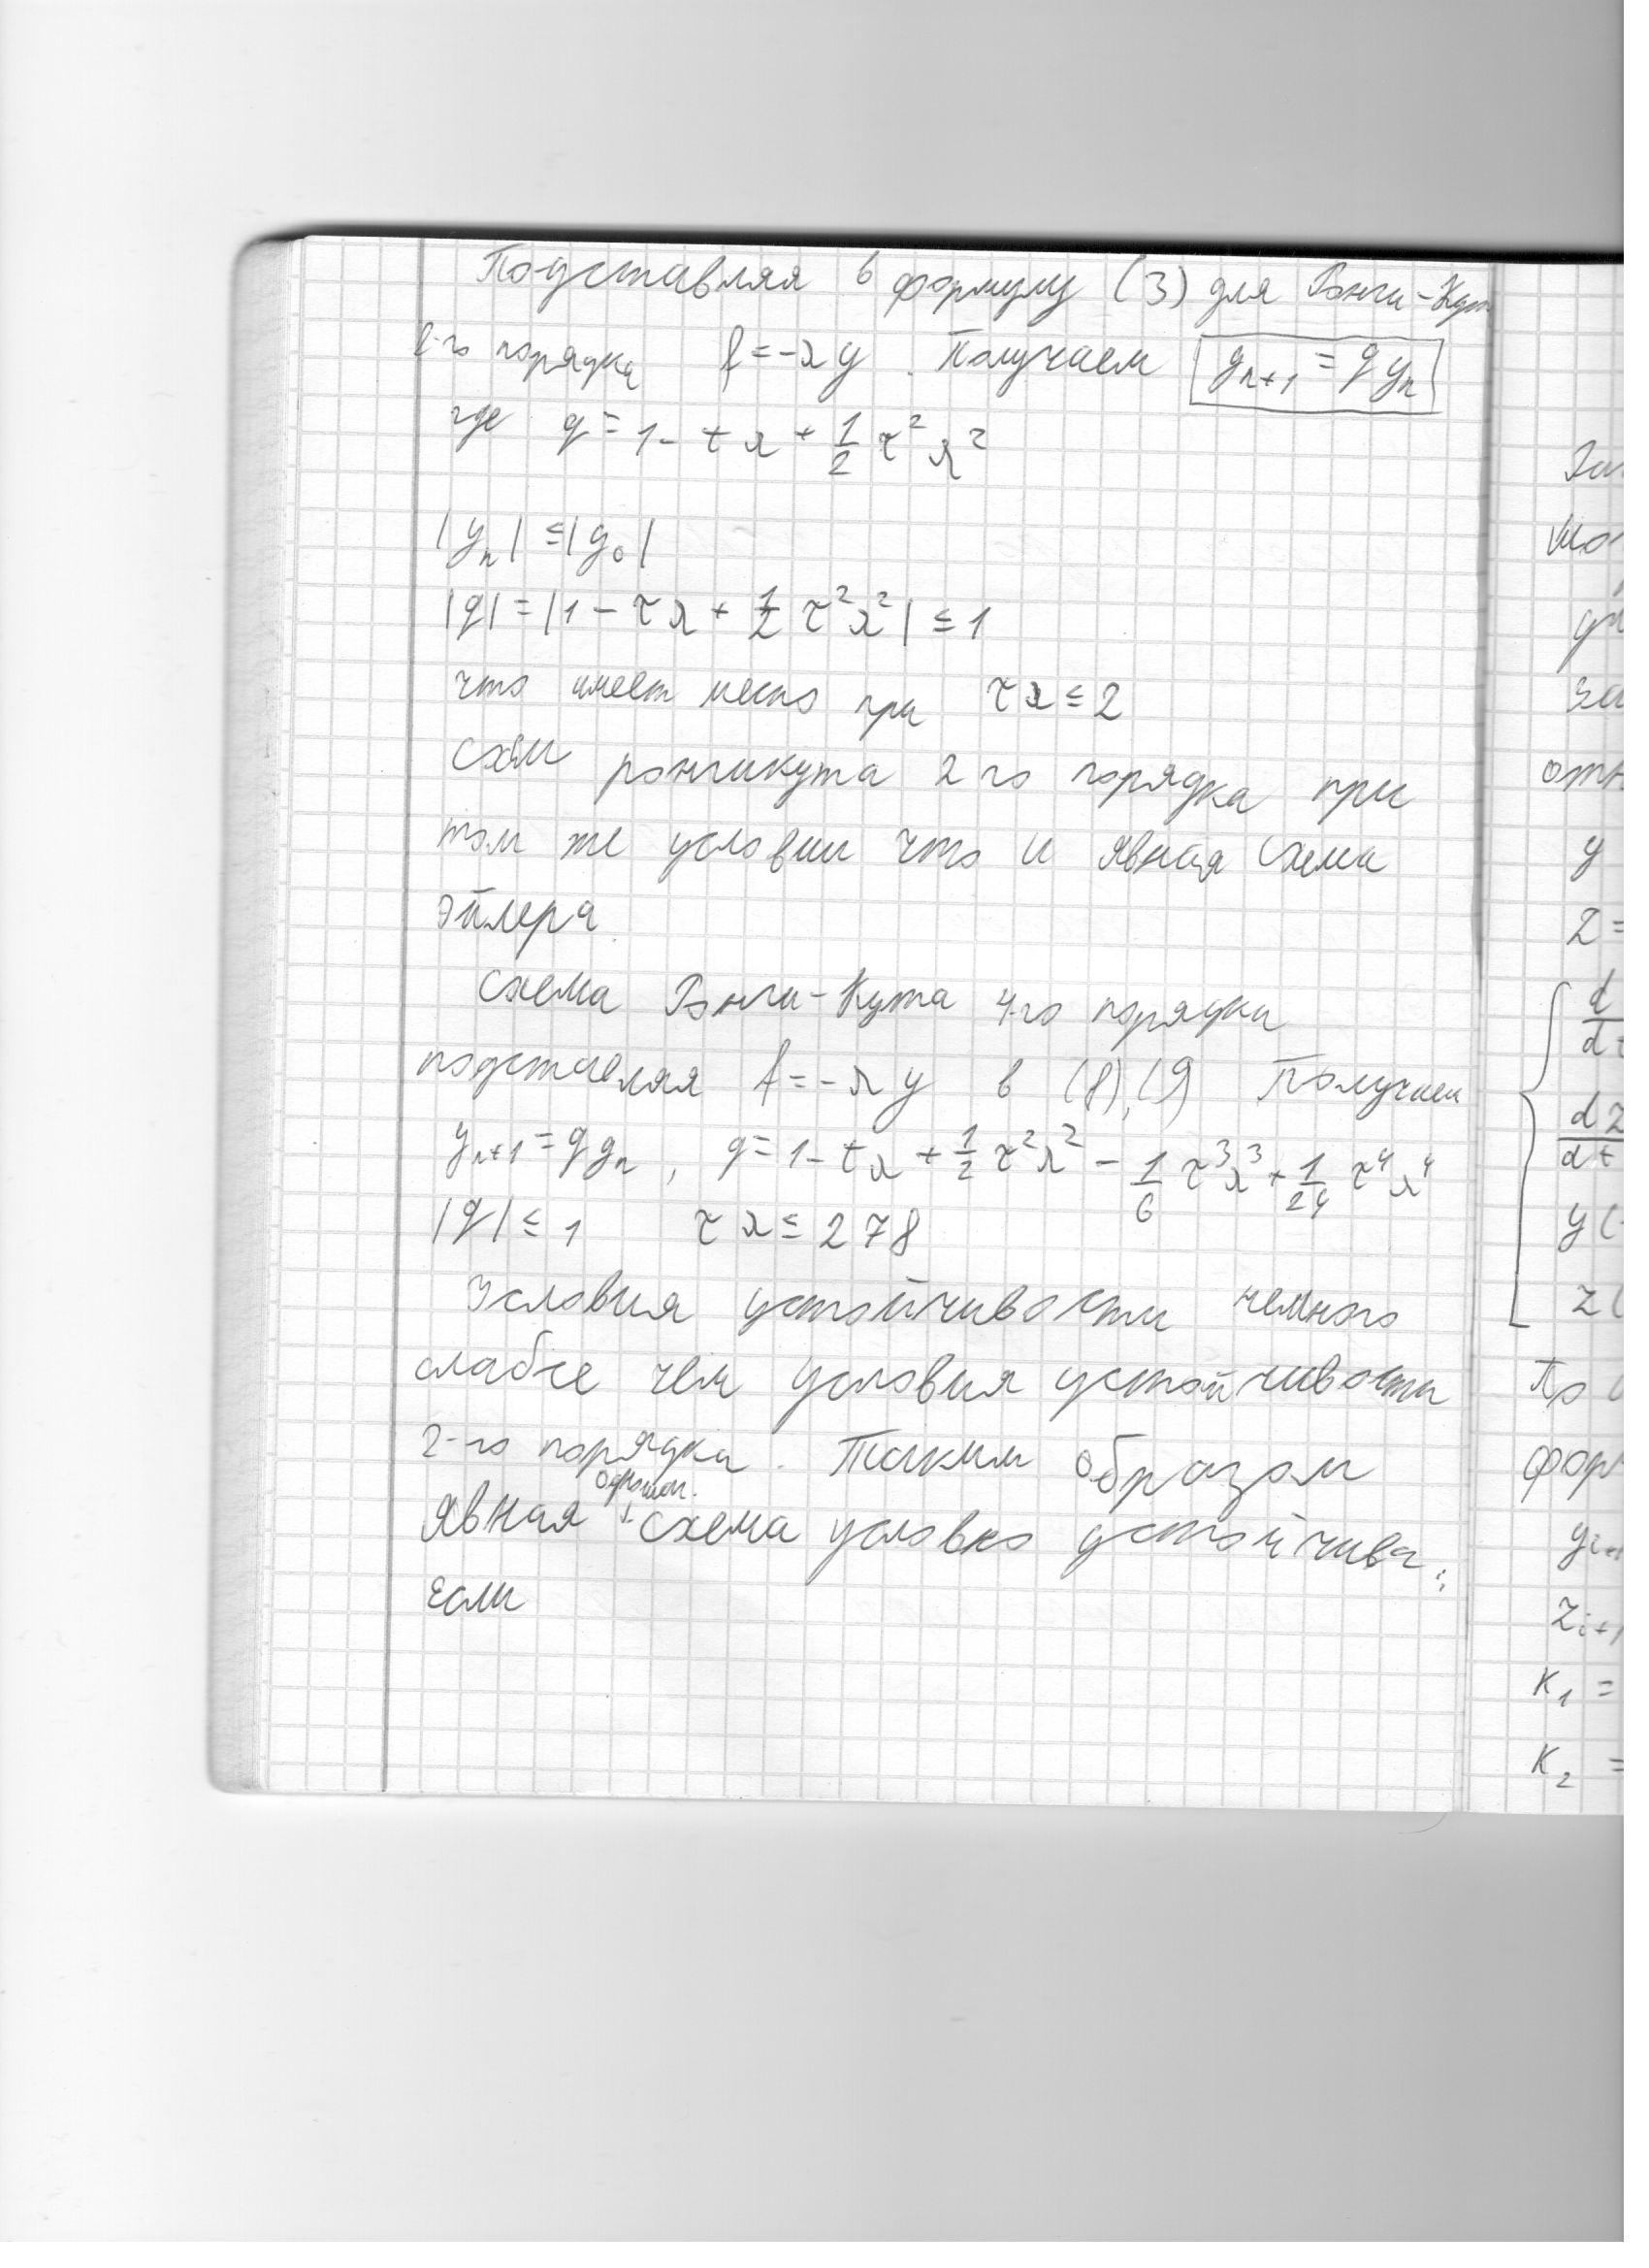 Подставляя в формулу (3) для Рэнги-Кут
2-го порядка f = -λy. Получаем y_{n+1} = q y_n
где q = 1 - τλ + 1/2 τ²λ²
|y_n| ≤ |y_0|
|q| = |1 - τλ + 1/2 τ²λ²| ≤ 1
что имеет место при τλ ≤ 2
схем ронгикута 2го порядка при
том же условии что и явная схема
Эйлера
Схема Рэнги-Кута 4-го порядка
подставляя f = -λy в (8),(9) Получаем
y_{n+1} = q y_n, q = 1 - τλ + 1/2 τ²λ² - 1/6 τ³λ³ + 1/24 τ⁴λ⁴
|q| ≤ 1 τλ ≤ 2 78
Условия устойчивости немного
слабее чем условия устойчивости
2-го порядка. Таким образом
явная схема условно устойчива:
если
отн
y
z =
d
dt
dz
dt
y(
z(
фор
z_{i+1}
K_1 =
K_2 =